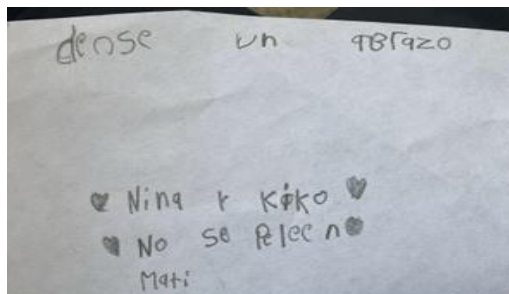 dense un aBrazo
Nina y Kiko
No se Peleen
Mati